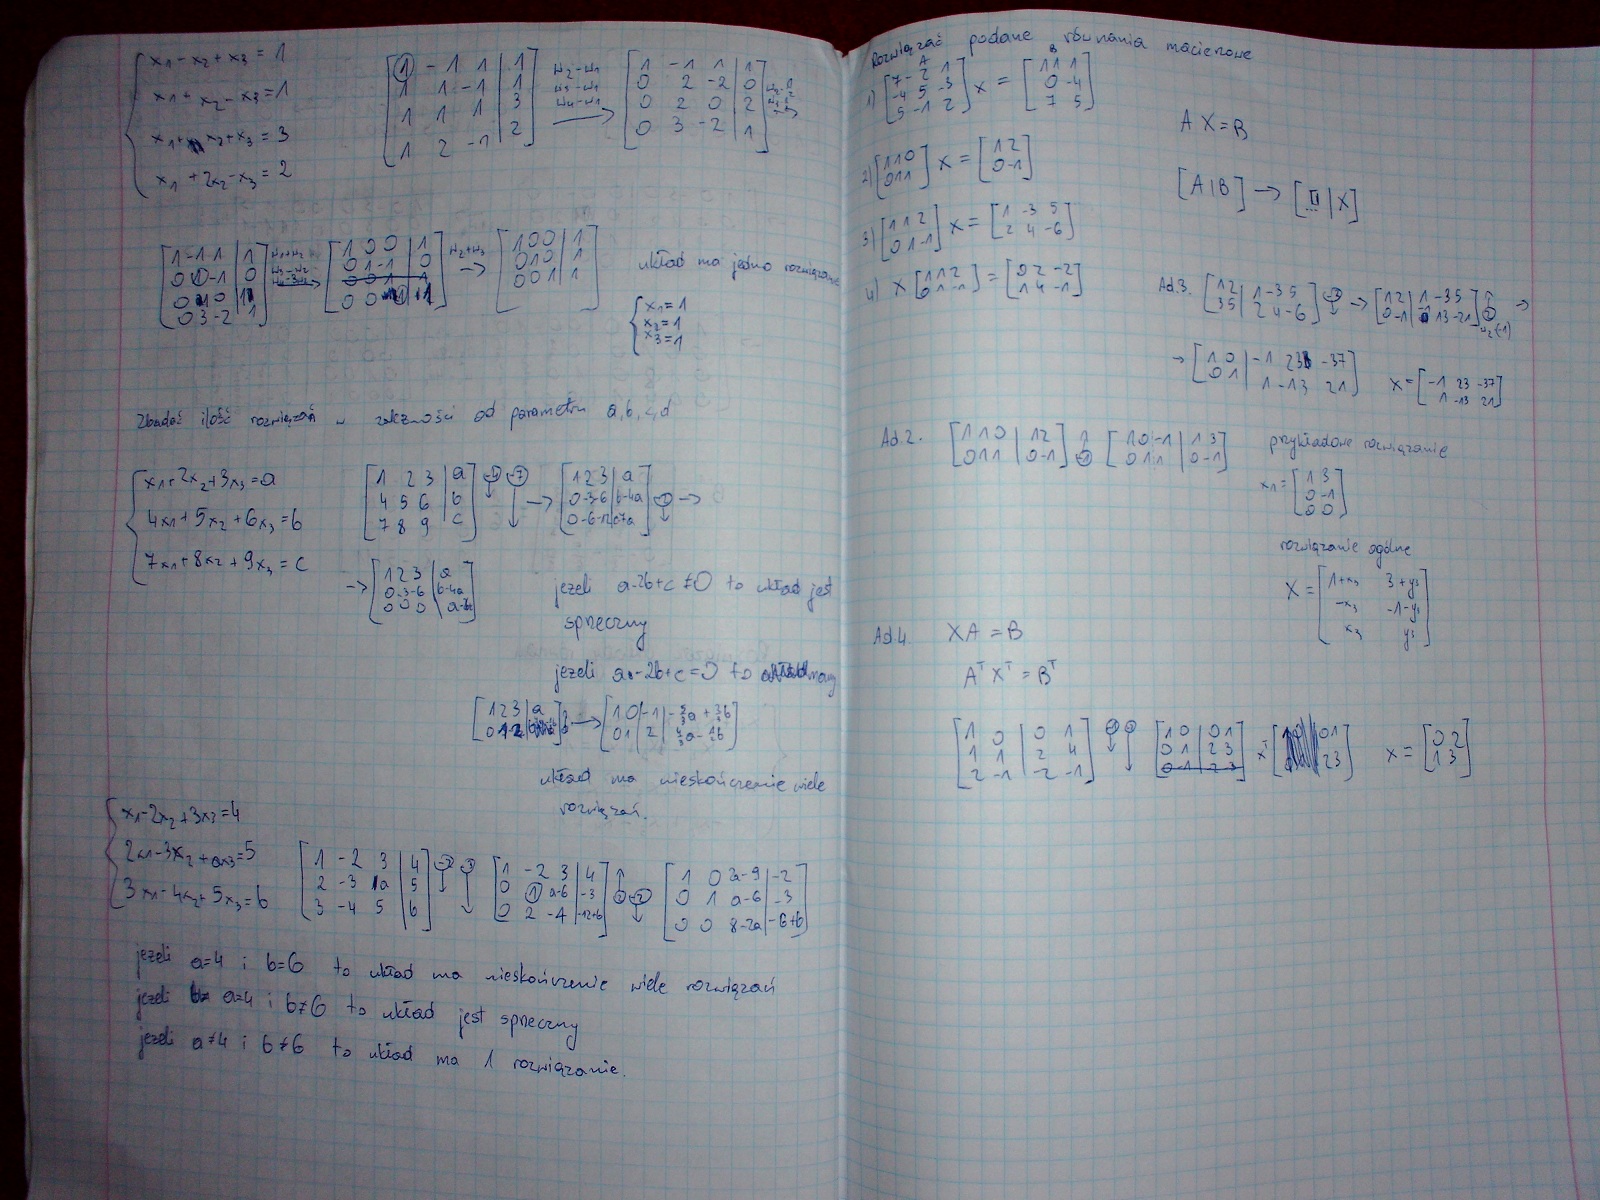 x₁ - x₂ + x₃ = 1
x₁ + x₂ - x₃ = 1
x₁ + x₂ + x₃ = 3
x₁ + 2x₂ - x₃ = 2
[1 -1 1 | 1] w₂-w₁ [1 -1 1 | 1]
[1 1 -1 | 1] w₃-w₁ [0 2 -2 | 0]
[1 1 1 | 3] w₄-w₁ [0 2 0 | 2]
[1 2 -1 | 2] → [0 3 -2 | 1]
[1 -1 1 | 1] w₁+w₂ [1 0 0 | 1] w₂+w₃ [1 0 0 | 1]
[0 1 -1 | 0] w₃-w₂ [0 1 -1 | 0] → [0 1 0 | 1]
[0 1 0 | 1] w₄-3w₂ → [0 0 1 | 1] [0 0 1 | 1]
[0 3 -2 | 1] [0 0 1 | 1]
układ ma jedno rozwiązanie
x₁ = 1
x₂ = 1
x₃ = 1
Zbadać ilość rozwiązań w zależności od parametru a, b, c, d
x₁ + 2x₂ + 3x₃ = a
4x₁ + 5x₂ + 6x₃ = b
7x₁ + 8x₂ + 9x₃ = c
[1 2 3 | a] [1 2 3 | a]
[4 5 6 | b] → [0 -3 -6 | b-4a] →
[7 8 9 | c] [0 -6 -12 | c-7a]
→ [1 2 3 | a]
[0 -3 -6 | b-4a]
[0 0 0 | a-2b]
jeżeli a-2b+c ≠ 0 to układ jest
sprzeczny
jeżeli a-2b+c = 0 to
[1 2 3 | a] → [1 0 -1 | -5/3 a + 2/3 b]
[0 1 2 | [0 1 2 | 4/3 a - 1/3 b]
układ ma nieskończenie wiele
rozwiązań.
x₁ - 2x₂ + 3x₃ = 4
2x₁ - 3x₂ + ax₃ = 5
3x₁ - 4x₂ + 5x₃ = b
[1 -2 3 | 4] [1 -2 3 | 4] [1 0 2a-9 | -2]
[2 -3 a | 5] [0 1 a-6 | -3] [0 1 a-6 | -3]
[3 -4 5 | b] [0 2 -4 | -12+b] [0 0 8-2a | -6+b]
jeżeli a=4 i b=6 to układ ma nieskończenie wiele rozwiązań
jeżeli a=4 i b≠6 to układ jest sprzeczny
jeżeli a≠4 i b≠6 to układ ma 1 rozwiązanie.
Rozwiązać podane równania macierzowe
A B
1) [7 -2 1] x = [1 1 1]
[-4 5 -3] [0 -4]
[5 -1 2] [7 5]
2) [1 1 0] x = [1 2]
[0 1 1] [0 -1]
3) [1 1 2] x = [1 -3 5]
[0 1 -1] [2 4 -6]
4) x [1 1 2] = [0 2 -2]
[0 1 -1] [1 4 -1]
A X = B
[A | B] → [I | X]
Ad.3. [1 2 | 1 -3 5] → [1 2 | 1 -3 5] →
[3 5 | 2 4 -6] [0 -1 | -1 13 -21] w₂(-1)
→ [1 0 | -1 23 -37] x = [-1 23 -37]
[0 1 | 1 -13 21] [1 -13 21]
Ad.2. [1 1 0 | 1 2] [1 0 -1 | 1 3]
[0 1 1 | 0 -1] [0 1 1 | 0 -1]
przykładowe rozwiązanie
x₁ = [1 3]
[0 -1]
[0 0]
rozwiązanie ogólne
X = [1+x₃ 3+y₃]
[-x₃ -1-y₃]
[x₃ y₃]
Ad.4. X A = B
Aᵀ Xᵀ = Bᵀ
[1 0 | 0 1] [1 0 | 0 1] xᵀ [0 1] x = [0 2]
[1 1 | 2 4] [0 1 | 2 3] [2 3] [1 3]
[2 -1 | -2 -1] [0 -1 | -2 -3]